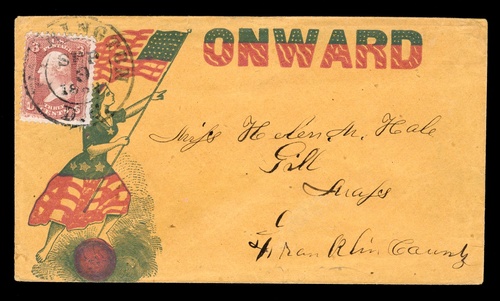 ONWARD
Miss Helen M. Hale
Gill
Mass
Franklin County